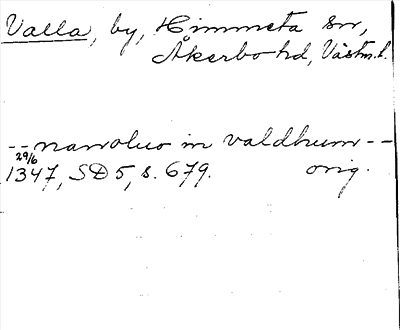 Valla, by, Himmeta sn,
Åkerbo hd, Västm.l.
-- narvoluo in valdhum --
29/6
1347, SD 5, s. 679. orig.